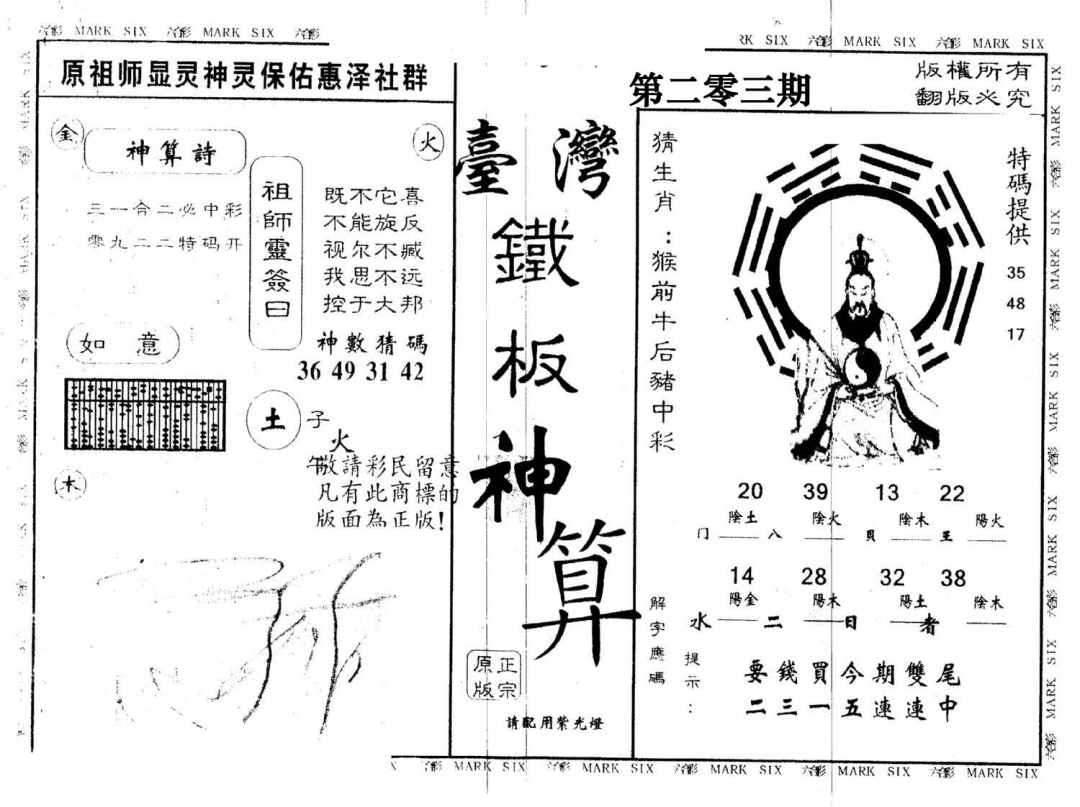 六合彩 MARK SIX 六合彩 MARK SIX 六合彩
RK SIX 六合彩 MARK SIX 六合彩 MARK SIX
原祖师显灵神灵保佑惠泽社群
金
火
神算詩
三一合二必中彩
零九二二特码开
祖師靈簽曰
既不它喜
不能旋反
视尔不臧
我思不远
控于大邦
神數猜碼
36 49 31 42
如意
土
子
火
午
木
敬請彩民留意
凡有此商標的
版面為正版!
臺灣
鐵板神算
正宗
原版
請配用紫光燈
第二零三期
版權所有
翻版必究
猜生肖:猴前牛后豬中彩
特碼提供
35
48
17
20 39 13 22
陰土 陰火 陰木 陽火
门 八 貝 王
14 28 32 38
陽金 陽木 陽土 陰木
水 二 日 者
解字應碼
提示:
要錢買今期雙尾
二三一五連連中
六合彩 MARK SIX 六合彩 MARK SIX 六合彩 MARK SIX 六合彩 MARK SIX 六合彩 MARK SIX